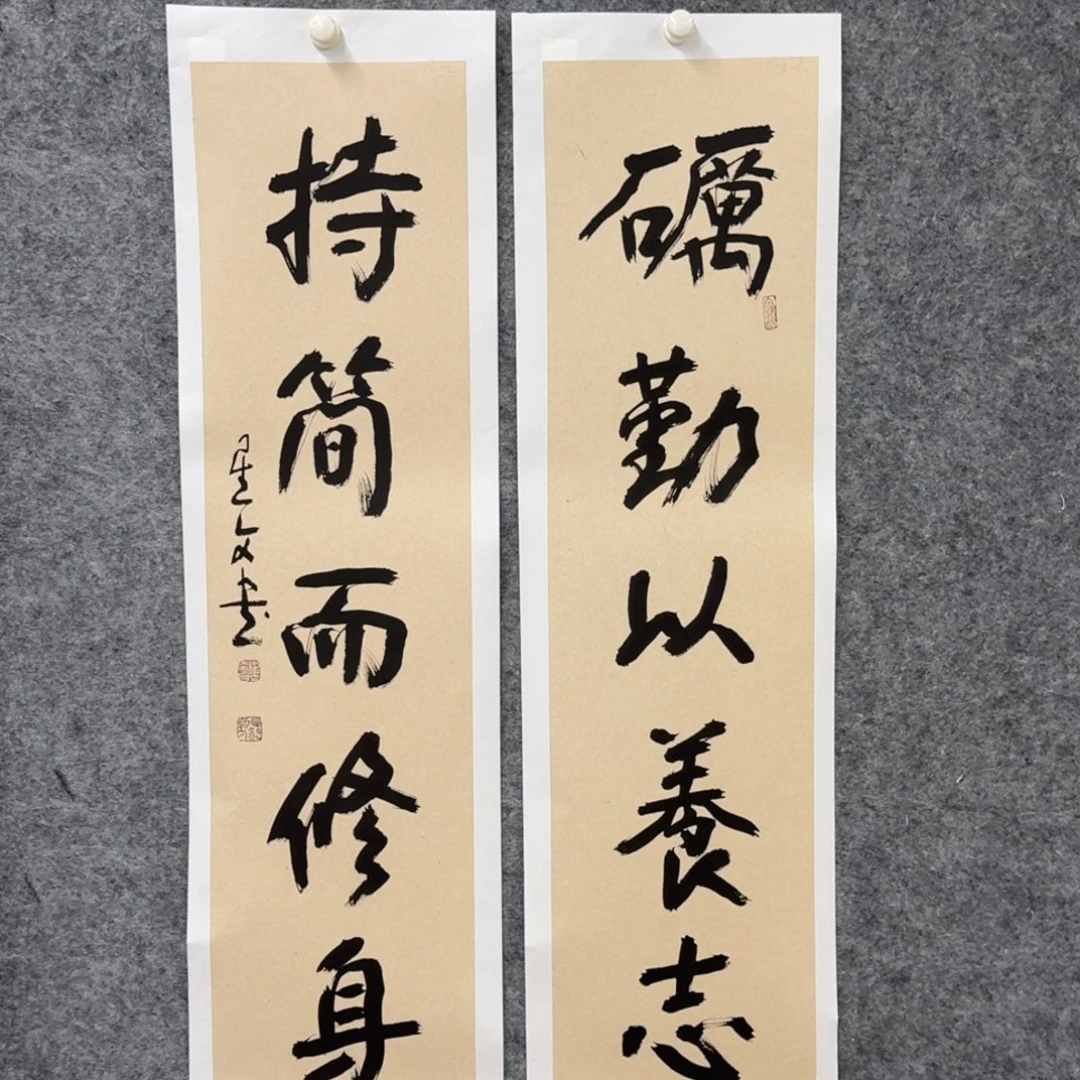 礪勤以養志
持簡而修身